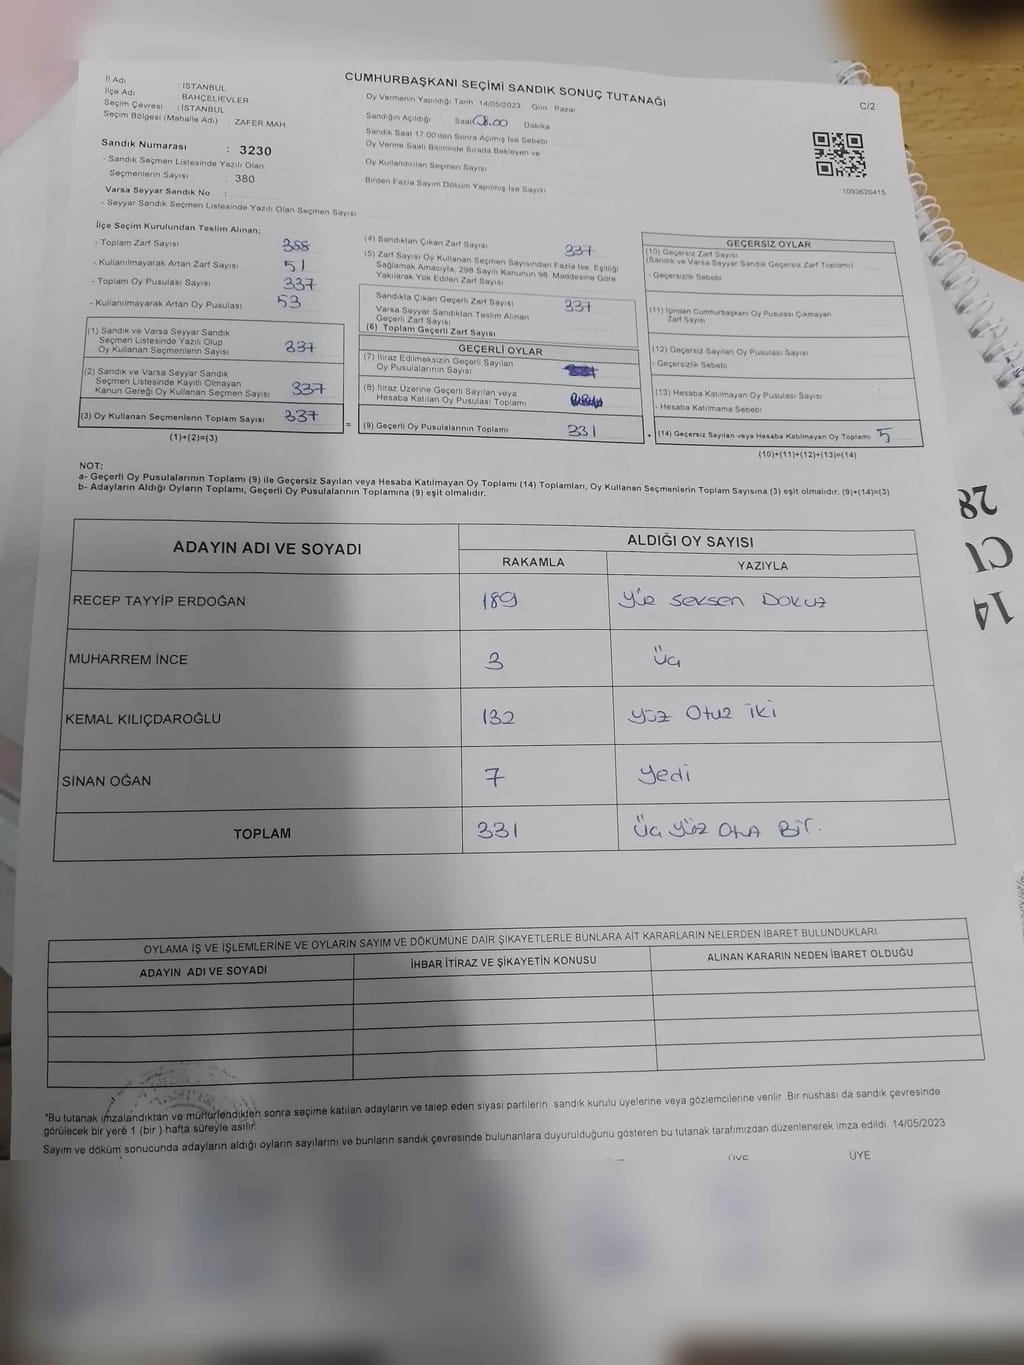 CUMHURBAŞKANI SEÇİMİ SANDIK SONUÇ TUTANAĞI
C/2
İl Adı : İSTANBUL
İlçe Adı : BAHÇELİEVLER
Seçim Çevresi : İSTANBUL
Seçim Bölgesi (Mahalle Adı) : ZAFER MAH
Sandık Numarası : 3230
- Sandık Seçmen Listesinde Yazılı Olan
Seçmenlerin Sayısı : 380
Varsa Seyyar Sandık No :
- Seyyar Sandık Seçmen Listesinde Yazılı Olan Seçmen Sayısı
Oy Vermenin Yapıldığı Tarih 14/05/2023 Gün : Pazar
Sandığın Açıldığı Saat 08.00 Dakika
Sandık Saat 17:00'den Sonra Açımış İse Sebebi
Oy Verme Saati Bitiminde Sırada Bekleyen ve
Oy Kullandırılan Seçmen Sayısı
Birden Fazla Sayım Döküm Yapılmış İse Sayısı
1093626415
İlçe Seçim Kurulundan Teslim Alınan;
- Toplam Zarf Sayısı 388
- Kullanılmayarak Artan Zarf Sayısı 51
- Toplam Oy Pusulası Sayısı 337
- Kullanılmayarak Artan Oy Pusulası 53
(1) Sandık ve Varsa Seyyar Sandık
Seçmen Listesinde Yazılı Olup
Oy Kullanan Seçmenlerin Sayısı 337
(2) Sandık ve Varsa Seyyar Sandık
Seçmen Listesinde Kayıtlı Olmayan
Kanun Gereği Oy Kullanan Seçmen Sayısı 337
(3) Oy Kullanan Seçmenlerin Toplam Sayısı 337
(1)+(2)=(3)
(4) Sandıktan Çıkan Zarf Sayısı 337
(5) Zarf Sayısı Oy Kullanan Seçmen Sayısından Fazla İse, Eşitliği
Sağlamak Amacıyla, 298 Sayılı Kanunun 98. Maddesine Göre
Yakılarak Yok Edilen Zarf Sayısı
Sandıkta Çıkan Geçerli Zarf Sayısı 337
Varsa Seyyar Sandıktan Teslim Alınan
Geçerli Zarf Sayısı
(6) Toplam Geçerli Zarf Sayısı
GEÇERLİ OYLAR
(7) İtiraz Edilmeksizin Geçerli Sayılan
Oy Pusulalarının Sayısı
(8) İtiraz Üzerine Geçerli Sayılan veya
Hesaba Katılan Oy Pusulası Toplamı
= (9) Geçerli Oy Pusulalarının Toplamı 331
GEÇERSİZ OYLAR
(10) Geçersiz Zarf Sayısı
(Sandık ve Varsa Seyyar Sandık Geçersiz Zarf Toplamı)
- Geçersizlik Sebebi
(11) İçinden Cumhurbaşkanı Oy Pusulası Çıkmayan
Zarf Sayısı
(12) Geçersiz Sayılan Oy Pusulası Sayısı
- Geçersizlik Sebebi
(13) Hesaba Katılmayan Oy Pusulası Sayısı
- Hesaba Katılmama Sebebi
+ (14) Geçersiz Sayılan veya Hesaba Katılmayan Oy Toplamı 5
(10)+(11)+(12)+(13)=(14)
NOT:
a- Geçerli Oy Pusulalarının Toplamı (9) ile Geçersiz Sayılan veya Hesaba Katılmayan Oy Toplamı (14) Toplamları, Oy Kullanan Seçmenlerin Toplam Sayısına (3) eşit olmalıdır. (9)+(14)=(3)
b- Adayların Aldığı Oyların Toplamı, Geçerli Oy Pusulalarının Toplamına (9) eşit olmalıdır.
ADAYIN ADI VE SOYADI ALDIĞI OY SAYISI
RAKAMLA YAZIYLA
RECEP TAYYİP ERDOĞAN 189 Yüz Seksen Dokuz
MUHARREM İNCE 3 Üç
KEMAL KILIÇDAROĞLU 132 Yüz Otuz iki
SİNAN OĞAN 7 Yedi
TOPLAM 331 Üç Yüz Otuz Bir.
28
CI
14
OYLAMA İŞ VE İŞLEMLERİNE VE OYLARIN SAYIM VE DÖKÜMÜNE DAİR ŞİKAYETLERLE BUNLARA AİT KARARLARIN NELERDEN İBARET BULUNDUKLARI
ADAYIN ADI VE SOYADI İHBAR İTİRAZ VE ŞİKAYETİN KONUSU ALINAN KARARIN NEDEN İBARET OLDUĞU
*Bu tutanak imzalandıktan ve mühürlendikten sonra seçime katılan adayların ve talep eden siyasi partilerin sandık kurulu üyelerine veya gözlemcilerine verilir .Bir nüshası da sandık çevresinde
görülecek bir yere 1 (bir ) hafta süreyle asılır.
Sayım ve döküm sonucunda adayların aldığı oyların sayılarını ve bunların sandık çevresinde bulunanlara duyurulduğunu gösteren bu tutanak tarafımızdan düzenlenerek imza edildi. 14/05/2023
ÜYE ÜYE